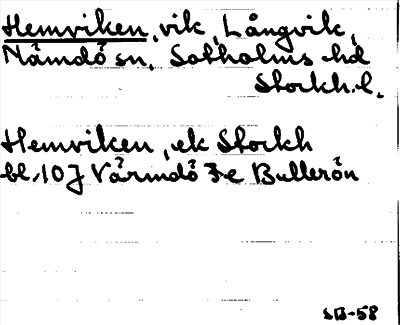 Hemviken, vik, Långvik,
Nämdö sn. Sotholms hd
Stockh. l.
Hemviken, ek Stockh
bl. 10J Värmdö 3e Bullerön
SB-58